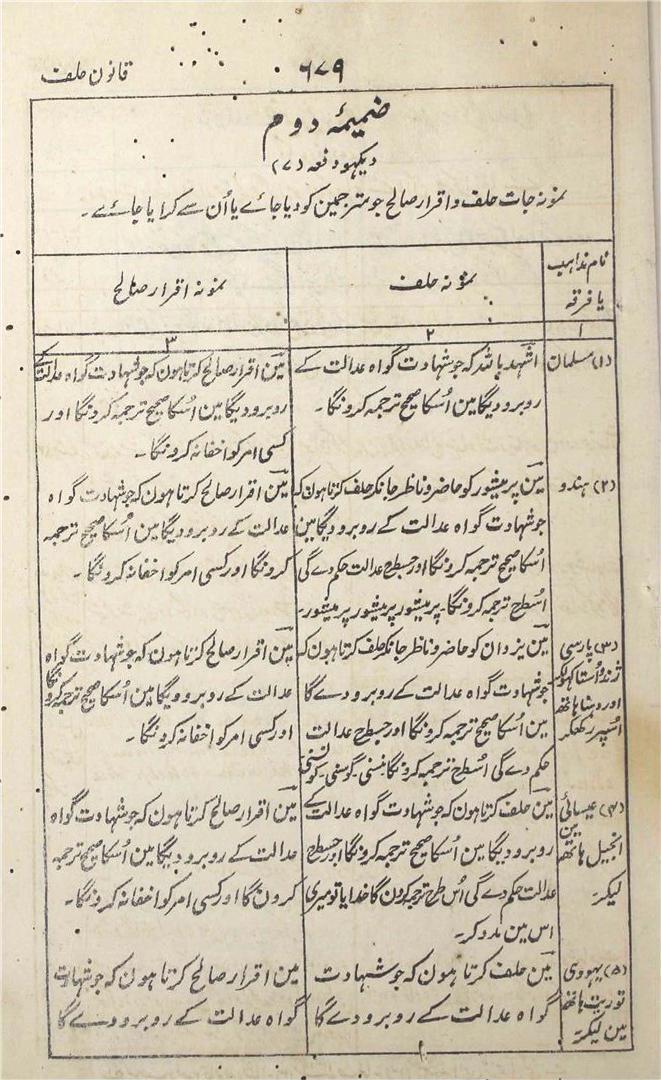 ۶۷۹
قانون حلف
ضمیمۂ دوم
دیکھو دفعہ (۷)
نمونہ جات حلف و اقرار صالح جو مترجمین کو دیا جائے یا اُن سے کرایا جائے ۔
نام مذاہب
یا فرقہ
نمونہ حلف
نمونہ اقرار صالح
۱
۲
۳
(۱) مسلمان
اشہد باللہ کہ جو شہادت گواہ عدالت کے
روبرو دیگا مین اُسکا صحیح ترجمہ کرونگا ۔
مین اقرار صالح کرتا ہون کہ جو شہادت گواہ عدالت کے
روبرو دیگا مین اُسکا صحیح ترجمہ کرونگا اور
کسی امر کو اخفا نہ کرونگا ۔
(۲) ہندو
مین پرمیشور کو حاضر و ناظر جانکر حلف کرتا ہون کہ
جو شہادت گواہ عدالت کے روبرو دیگا مین
اُسکا صحیح ترجمہ کرونگا اور جسطرح عدالت حکم دے گی
اُسطرح ترجمہ کرونگا ۔ پرمیشور پرمیشور پرمیشور ۔
مین اقرار صالح کرتا ہون کہ جو شہادت گواہ
عدالت کے روبرو دیگا مین اُسکا صحیح ترجمہ
کرونگا اور کسی امر کو اخفا نہ کرونگا ۔
(۳) پارسی
ژند و اُستا کہولکر
اور دہنا ہاتھ
اُسپر رکھکر
مین یزدان کو حاضر و ناظر جانکر حلف کرتا ہون کہ
جو شہادت گواہ عدالت کے روبرو دے گا
مین اُسکا صحیح ترجمہ کرونگا اور جسطرح عدالت
حکم دے گی اُسطرح ترجمہ کرونگا
مین اقرار صالح کرتا ہون کہ جو شہادت گواہ
عدالت کے روبرو دیگا مین اُسکا صحیح ترجمہ کرونگا
اور کسی امر کو اخفا نہ کرونگا ۔
(۴) عیسائی
انجیل ہاتھ مین
لیکر
مین حلف کرتا ہون کہ جو شہادت گواہ عدالت کے
روبرو دیگا مین اُسکا صحیح ترجمہ کرونگا اور جسطرح
عدالت حکم دے گی اُس طرح ترجمہ کرون گا خدایا تو میری
اس مین مدد کر ۔
مین اقرار صالح کرتا ہون کہ جو شہادت گواہ
عدالت کے روبرو دیگا مین اُسکا صحیح ترجمہ
کرون گا اور کسی امر کو اخفا نہ کرونگا ۔
(۵) یہودی
توریت ہاتھ
مین لیکر
مین حلف کرتا ہون کہ جو شہادت
گواہ عدالت کے روبرو دے گا
مین اقرار صالح کرتا ہون کہ جو شہادت
گواہ عدالت کے روبرو دے گا